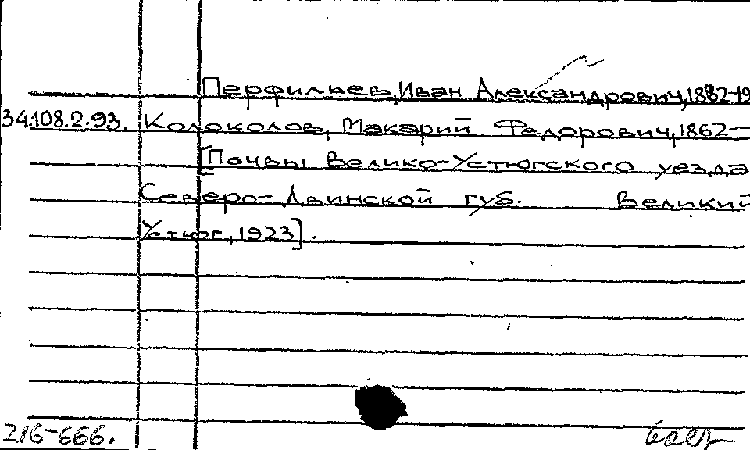 Перфильев, Иван Александрович, 1882-19
34.108.2.93. Колоколов, Макарий Федорович, 1862-
[Почвы Велико-Устюгского уезда
Северо-Двинской губ. Великий
Устюг, 1923].
216-666.